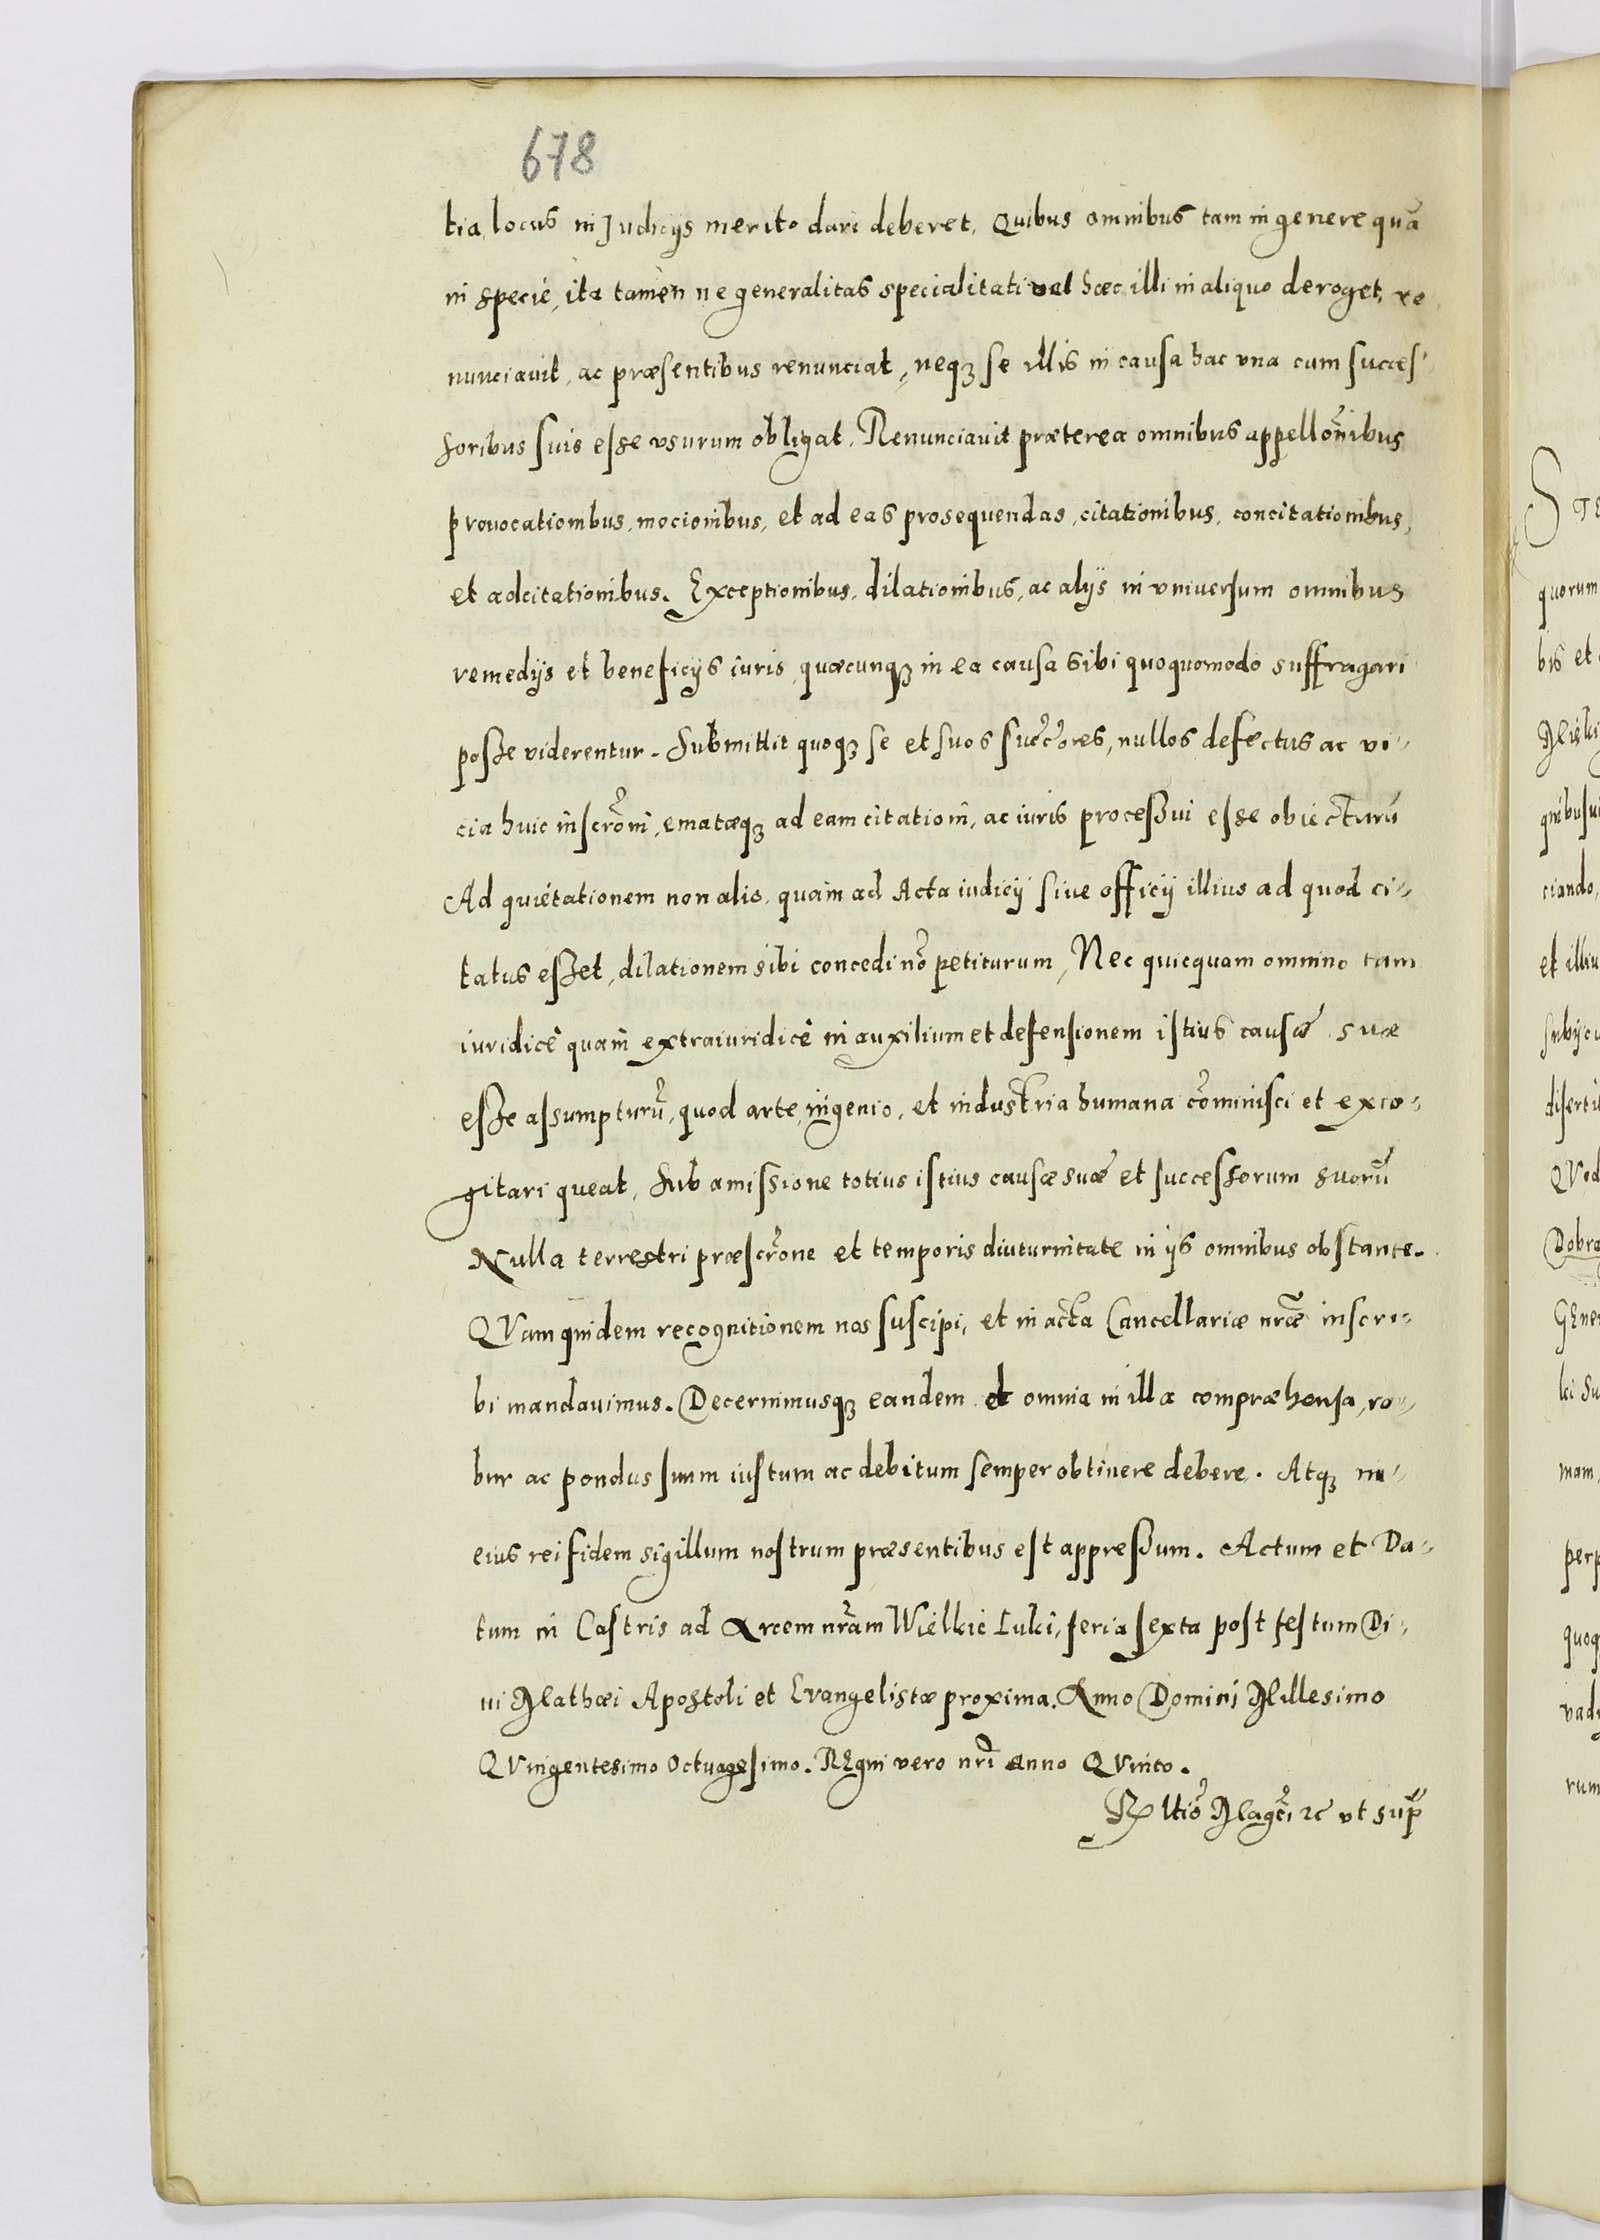 678
tia, locus in Judicijs merito dari deberet. Quibus omnibus tam in genere quã
in specie, ita tamen ne generalitas specialitati vel hæc illi in aliquo deroget, re
nunciavit, ac præsentibus renunciat, neqꝫ se illis in causa hac vna cum succes-
soribus suis esse vsurum obligat. Renunciavit præterea omnibus appellõnibus
provocationibus, mocionibus, et ad eas prosequendas, citationibus, concitationibus,
et adcitationibus. Exceptionibus, dilationibus, ac alijs in vniversum omnibus
remedijs et beneficijs iuris, quæcunqꝫ in ea causa sibi quoquomodo suffragari
posse viderentur. Submittit quoqꝫ se et suos succ̃ores, nullos defectus ac vi-
cia huic inscrõni, ematæqꝫ ad eam citationi, ac iuris processui esse obiecturũ
Ad quietationem non alio, quam ad Acta iudicij sive officij illius ad quod ci-
tatus esset, dilationem sibi concedi nõ petiturum, Nec quicquam omnino tam
iuridicè quam extraiuridicè in auxilium et defensionem istius causæ suæ
esse assumpturũ, quod arte, ingenio, et industria humana cõminisci et exco-
gitari queat, sub amissione totius istius causæ suæ et successorum suorũ
Nulla terrestri præscrõne et temporis diuturnitate in ijs omnibus obstante.
QVam quidem recognitionem nos suscipi, et in acta Cancellariæ nr̃æ inscri-
bi mandavimus. Decernimusqꝫ eandem et omnia in illa compræhensa, ro-
bur ac pondus suum iustum ac debitum semper obtinere debere. Atqꝫ in
eius rei fidem sigillum nostrum præsentibus est appressum. Actum et Da-
tum in Castris ad Arcem nr̃am Wielkie Luki, feria sexta post festum Di-
vi Mathæi Apostoli et Evangelistæ proxima. Anno Domini Millesimo
QVingentesimo Octuagesimo. REgni vero nr̃i anno QVinto.
Rltiõ Mag̃ci ꝛc vt sup̃